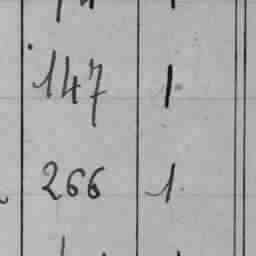 147 1
266 1